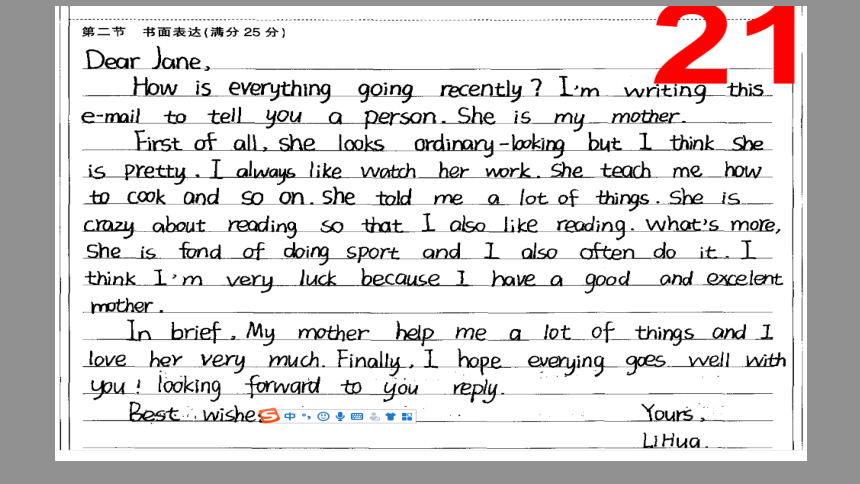 21
第二节 书面表达(满分 25 分)
Dear Jane,
How is everything going recently? I'm writing this
e-mail to tell you a person. She is my mother.
First of all, she looks ordinary-looking but I think she
is pretty. I always like watch her work. She teach me how
to cook and so on. She told me a lot of things. She is
crazy about reading so that I also like reading. What's more,
She is fond of doing sport and I also often do it. I
think I'm very luck because I have a good and excelent
mother.
In brief, My mother help me a lot of things and I
love her very much. Finally, I hope everying goes well with
you! looking forward to you reply.
Best wishes
中
Yours,
Li Hua.